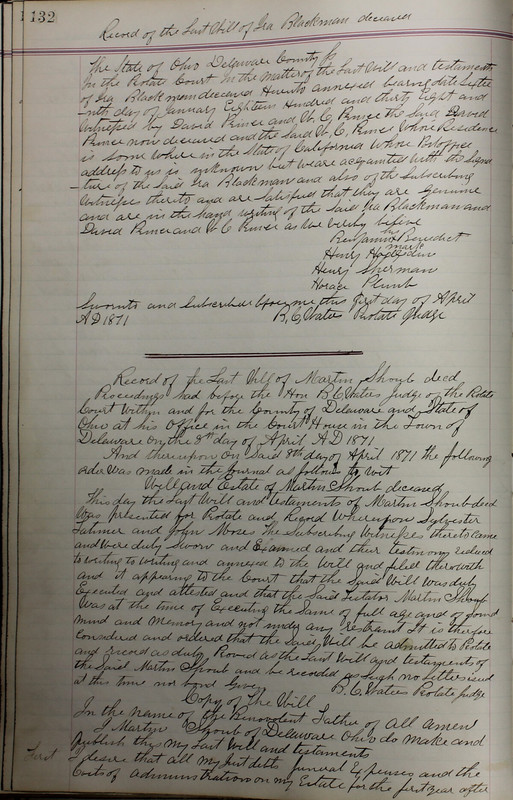 132
Record of the Last Will of Ira Blackman deceased
The State of Ohio Delaware County Ss
In the Probate Court In the matter of the Last Will and testament
of Ira Blackman deceased Hereunto annexed bearing date
day of January Eighteen Hundred and thirty Eight and
Witnessed by David Prince and W. C. Prince the Said David
Prince now deceased and the Said W. C. Prince Whose Residence
is Some Where in the State of California Whose Postoffice
address to us is unknown but we are acquainted With the Signa
ture of the Said Ira Blackman and also of the Subscribing
Witnesses thereto and are Satisfied that they are genuine
and are in the hand writing of the Said Ira Blackman and
David Prince and W C Prince as We verily believe
Benjamin Benedict
his
Henry
mark
Henry Sherman
Horace Plumb
Sworn to and Subscribed before me this first day of April
AD 1871 B. C. Waters Probate Judge
Record of the Last Will of Martin Shoub decd
Proceedings had before the Hon B. C. Waters Judge of the Probate
Court Within and for the County of Delaware and State of
Ohio at his Office in the Court House in the Town of
Delaware on the 8th day of April AD 1871
And thereupon on Said 8th day of April 1871 the following
order Was made in the Journal as follows to wit
Will and Estate of Martin Shoub deceased
This day the Last Will and testaments of Martin Shoub decd
Was presented for Probate and Record Whereupon Sylvester
Latimer and John Moses The Subscribing Witnesses thereto Came
and were duly Sworn and Examined and their testimony reduced
to writing to Writing and annexed to the Will and filed therewith
and it appearing to the Court that the Said Will was duly
Executed and attested and that the Said Testator Martin Shoub
Was at the time of Executing the Same of full age and of Sound
mind and Memory and not under any restraint It is therefore
Considered and ordered that the Said Will be admitted to Probate
and record as duly Proved as the Last Will and testaments of
the Said Martin Shoub and be recorded as Such no letters issued
at this time nor bond Given B. C. Waters Probate Judge
Copy of The Will
In the name of the Benevolent Father of All Amen
I Martin Shoub of Delaware Ohio do make and
publish this my Last Will and testaments
First I desire that all my Just debts funeral Expenses and the
Costs of administration on my Estate for the first year after